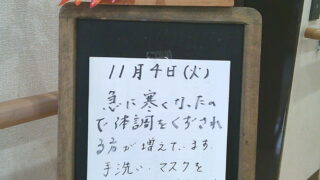 11月4日(火)
急に寒くなったの
で体調をくずされ
る方が増えています
手洗い・マスクを